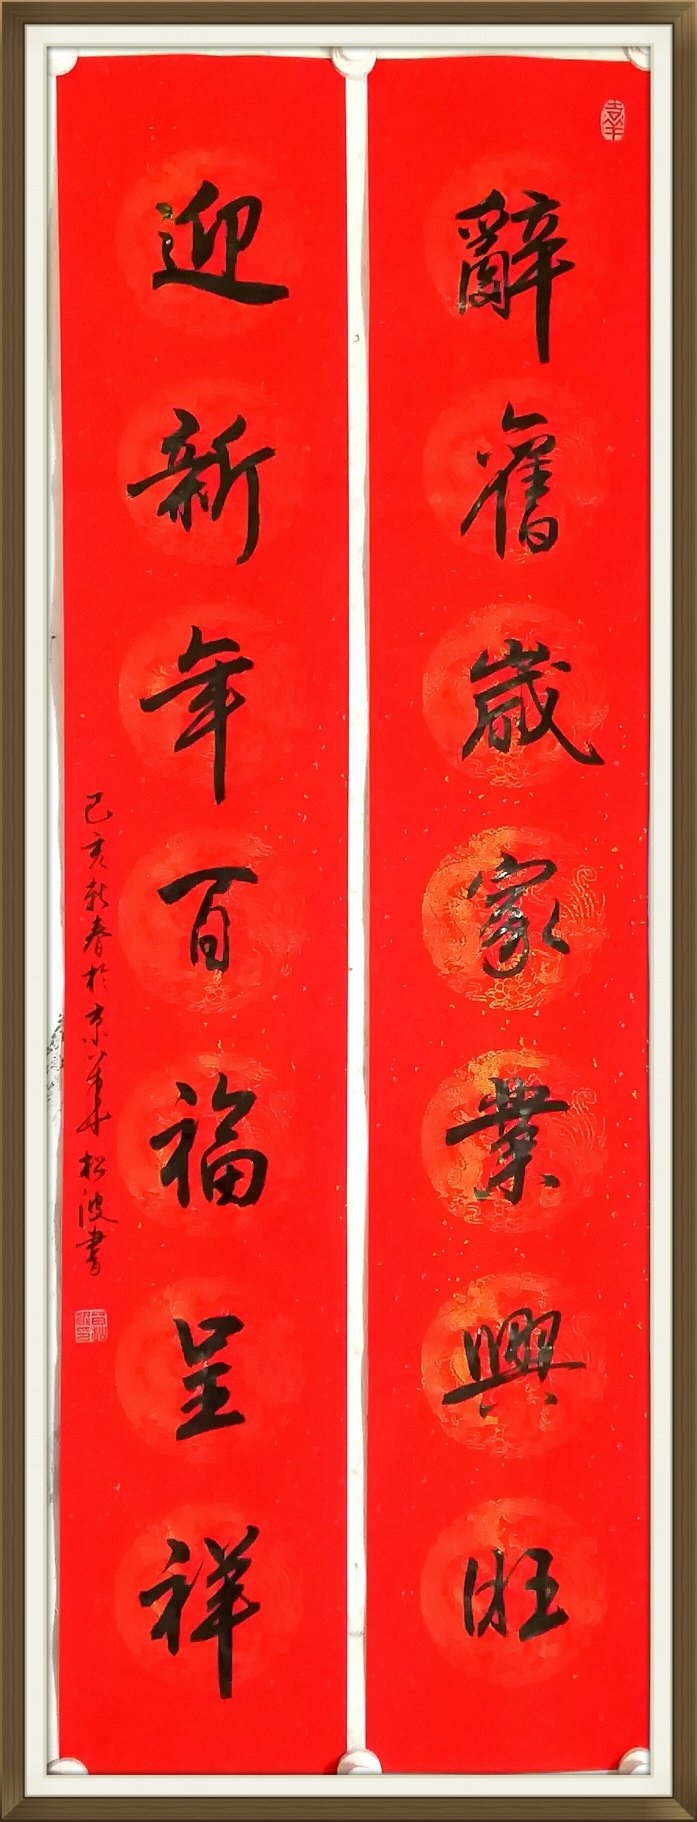 辭舊歲家業興旺
迎新年百福呈祥
己亥新春於京華松波書